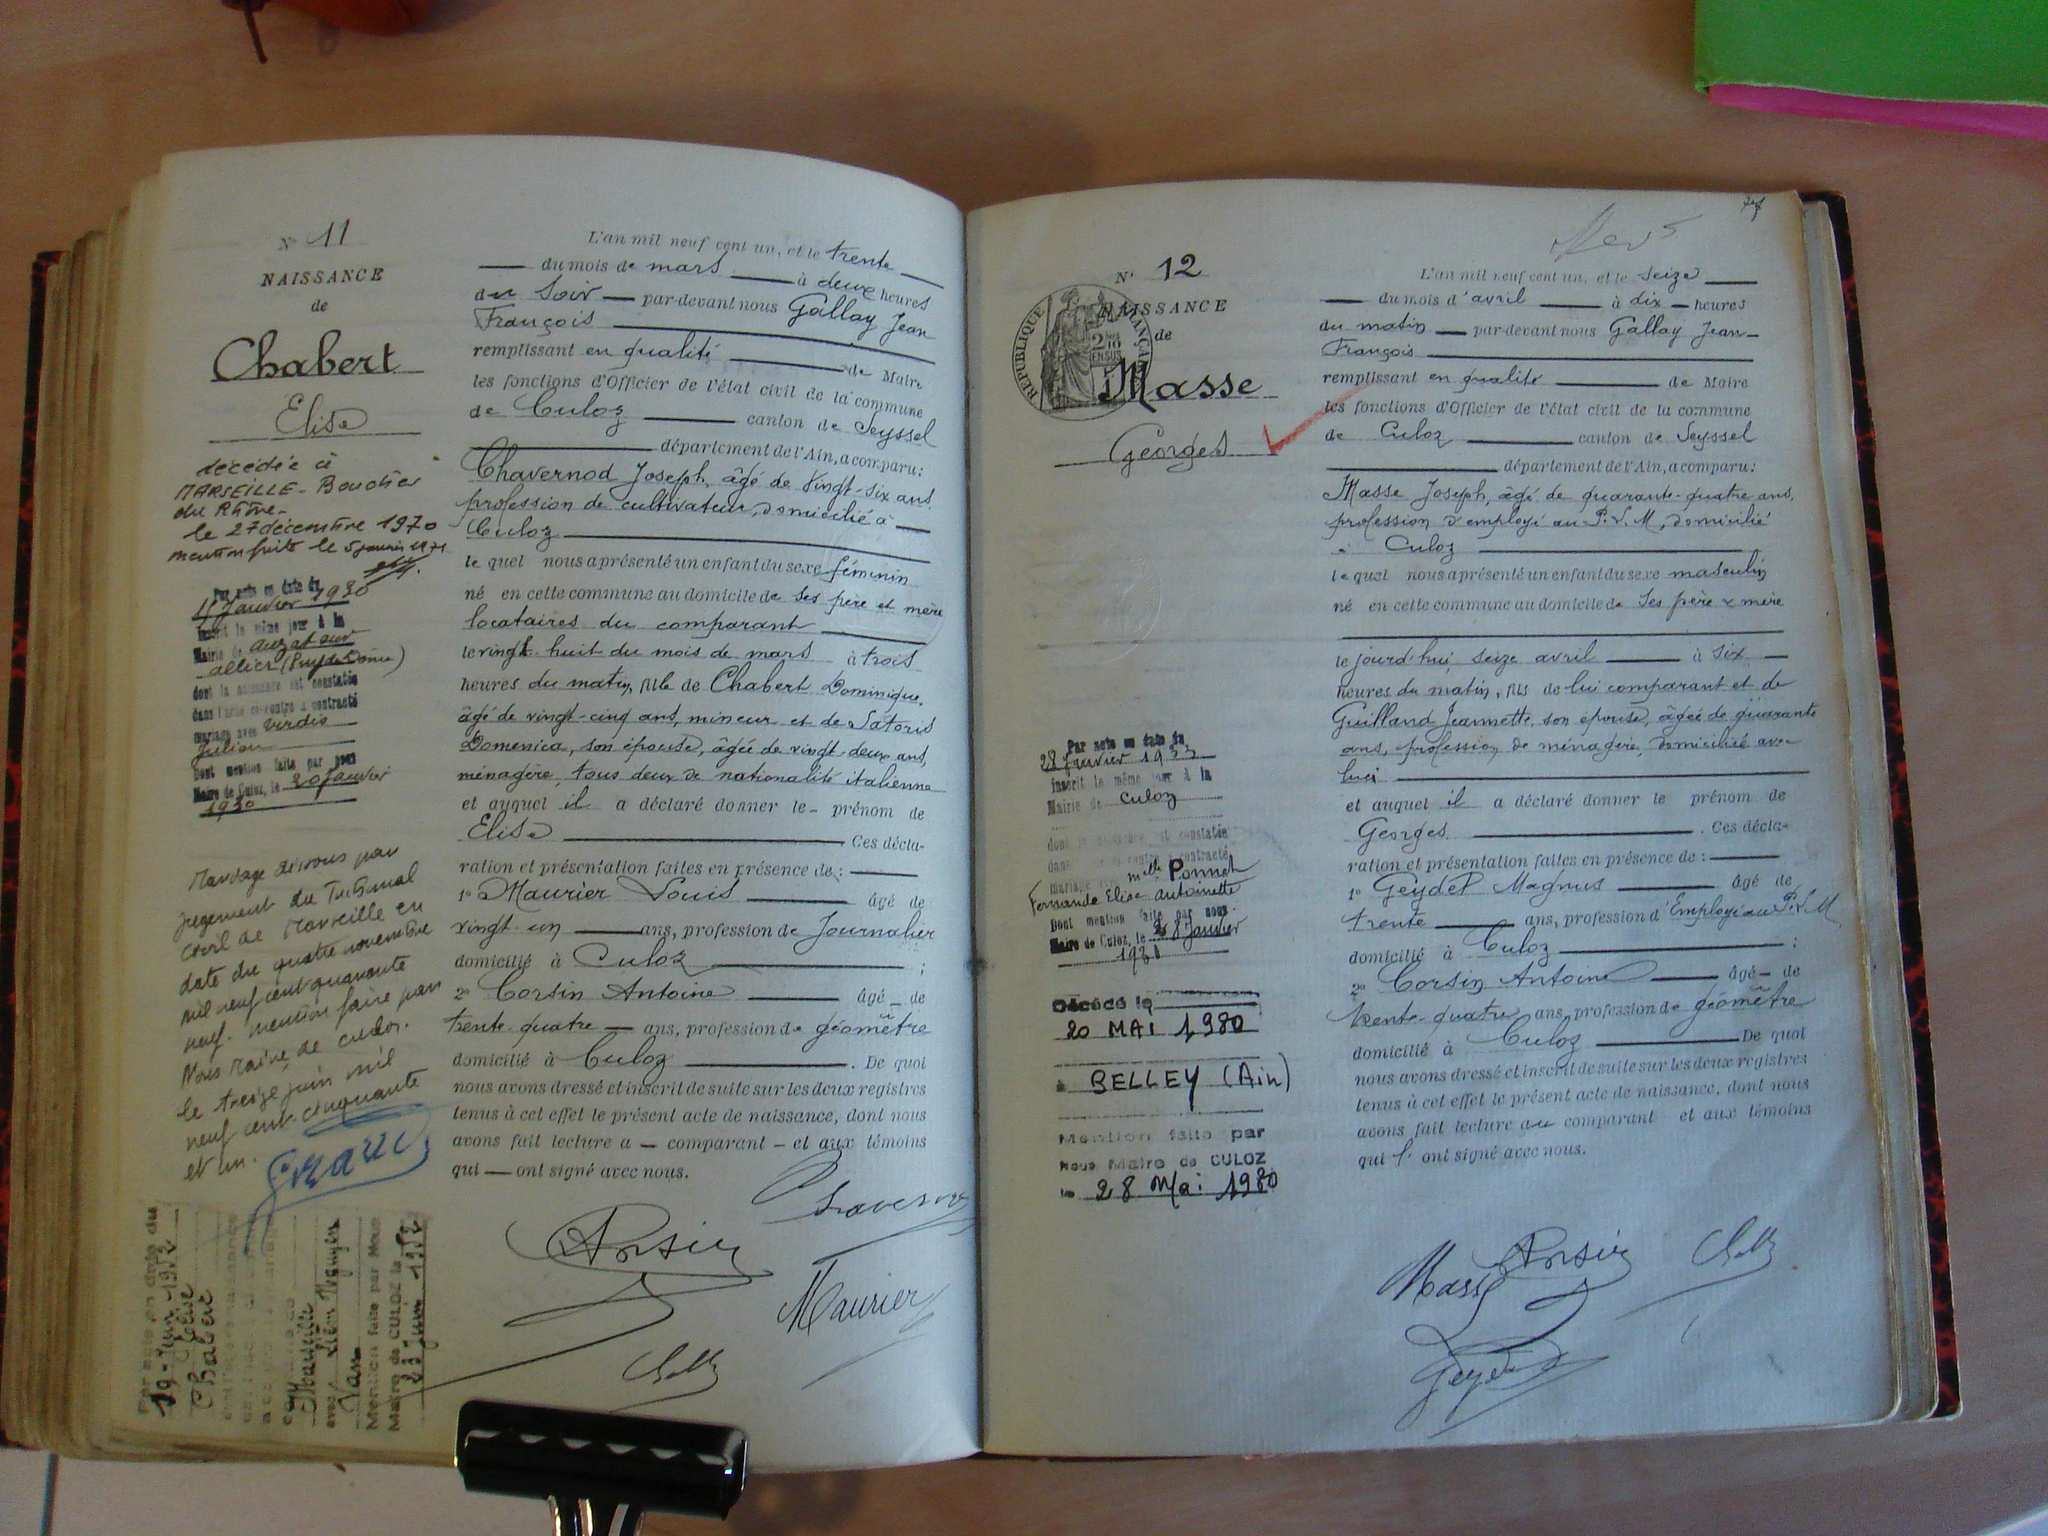 N° 11
NAISSANCE
de
Chabert
Elise
décédée à
MARSEILLE - Bouches
du Rhône -
le 27 décembre 1970
mention faite le 5 janvier 1971
Par acte en date du
Janvier 1930
inscrit le même jour à la
Mairie de Auzat sur
Allier (Puy de Dôme)
dont la naissance est constatée
dans l'acte ci-contre a contracté
mariage avec Verdis
Julien
Dont mention faite par nous
Maire de Culoz, le 20 Janvier
1930
Mariage dissous par
jugement du Tribunal
Civil de Marseille en
date du quatre novembre
mil neuf cent quarante
neuf. Mention faite par
Nous Maire de Culoz.
le treize juin mil
neuf cent cinquante
et un.
Par acte en date du
19 - Juin - 1952
Elise
Chabert
Marseille
avec Léon Nguyen
Van
Mention faite par Nous
Maire de CULOZ le
23 Juin 1952
L'an mil neuf cent un, et le trente
du mois de mars à deux heures
du Soir par-devant nous Gallay Jean
François
remplissant en qualité de Maire
les fonctions d'Officier de l'état civil de la commune
de Culoz canton de Seyssel
département de l'Ain, a comparu:
Chavernod Joseph, âgé de vingt-six ans,
profession de cultivateur, domicilié à
Culoz
lequel nous a présenté un enfant du sexe féminin
né en cette commune au domicile de ses père et mère
locataires du comparant
le vingt-huit du mois de mars à trois
heures du matin, fille de Chabert Dominique,
âgé de vingt-cinq ans, mineur et de Satoris
Domenica, son épouse, âgée de vingt-deux ans,
ménagère, tous deux de nationalité italienne
et auquel il a déclaré donner le prénom de
Elise Ces décla-
ration et présentation faites en présence de:
1° Maurier Louis âgé de
vingt-un ans, profession de Journalier
domicilié à Culoz ;
2° Corsin Antoine âgé de
trente-quatre ans, profession de géomètre
domicilié à Culoz . De quoi
nous avons dressé et inscrit de suite sur les deux registres
tenus à cet effet le présent acte de naissance, dont nous
avons fait lecture a comparant et aux témoins
qui ont signé avec nous.
Maurier
N° 12
NAISSANCE
de
REPUBLIQUE FRANÇAISE
Masse
Georges
Par acte en date du
28 Janvier 1933
inscrit le même jour à la
Mairie de Culoz
dont la naissance est constatée
dans l'acte ci-contre a contracté
mariage avec Melle Ponnet
Fernande Elise Antoinette
Dont mention faite par nous
Maire de Culoz, le 28 Janvier
Décédé le
20 MAI 1980
à BELLEY (Ain)
Mention faite par
Nous Maire de CULOZ
le 28 Mai 1980
L'an mil neuf cent un, et le seize
du mois d'avril à dix heures
du matin par-devant nous Gallay Jean-
François
remplissant en qualité de Maire
les fonctions d'Officier de l'état civil de la commune
de Culoz canton de Seyssel
département de l'Ain, a comparu:
Masse Joseph, âgé de quarante-quatre ans,
profession d'employé au P. L. M, domicilié
à Culoz
lequel nous a présenté un enfant du sexe masculin
né en cette commune au domicile de ses père & mère
le jourd'hui seize avril à six
heures du matin, fils de lui comparant et de
Guilland Jeannette, son épouse, âgée de quarante
ans, profession de ménagère, domiciliée avec
lui
et auquel il a déclaré donner le prénom de
Georges . Ces décla-
ration et présentation faites en présence de:
1° Geydet Magnus âgé de
trente ans, profession d'Employé au P. L. M
domicilié à Culoz ;
2° Corsin Antoine âgé de
trente-quatre ans, profession de géomètre
domicilié à Culoz De quoi
nous avons dressé et inscrit de suite sur les deux registres
tenus à cet effet le présent acte de naissance, dont nous
avons fait lecture au comparant et aux témoins
qui l' ont signé avec nous.
Masse